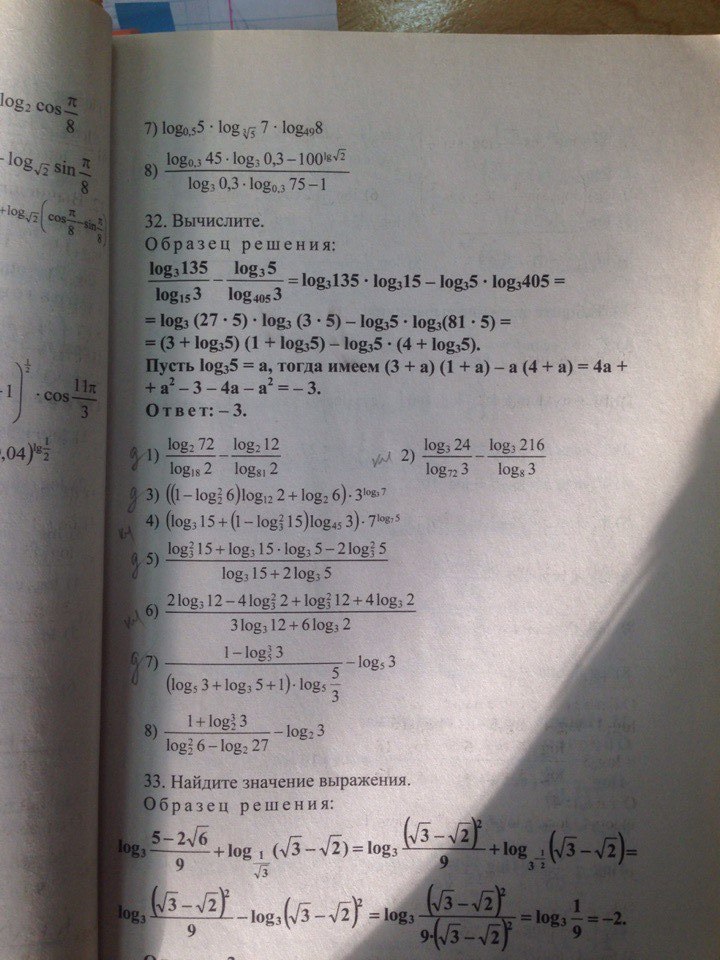 log₂ cos π/8
log_√2 sin π/8
+log_√2 (cos π/8 – sin π/8)
1)^(1/2) · cos 11π/3
,04)^(lg 1/2)
7) log₀,₅5 · log_∛5 7 · log₄₉8
8) (log₀,₃ 45 · log₃ 0,3 – 100^(lg√2)) / (log₃ 0,3 · log₀,₃ 75 – 1)
32. Вычислите.
Образец решения:
log₃135/log₁₅3 – log₃5/log₄₀₅3 = log₃135 · log₃15 – log₃5 · log₃405 =
= log₃ (27 · 5) · log₃ (3 · 5) – log₃5 · log₃(81 · 5) =
= (3 + log₃5) (1 + log₃5) – log₃5 · (4 + log₃5).
Пусть log₃5 = a, тогда имеем (3 + a) (1 + a) – a (4 + a) = 4a +
+ a² – 3 – 4a – a² = – 3.
Ответ: – 3.
д 1) log₂ 72/log₁₈ 2 – log₂ 12/log₈₁ 2 кл 2) log₃ 24/log₇₂ 3 – log₃ 216/log₈ 3
д 3) ((1 – log₂² 6) log₁₂ 2 + log₂ 6) · 3^(log₃ 7)
кл 4) (log₃ 15 + (1 – log₃² 15) log₄₅ 3) · 7^(log₇ 5)
д 5) (log₃² 15 + log₃ 15 · log₃ 5 – 2log₃² 5) / (log₃ 15 + 2log₃ 5)
кл 6) (2log₃ 12 – 4log₃² 2 + log₃² 12 + 4log₃ 2) / (3log₃ 12 + 6log₃ 2)
д 7) (1 – log₅³ 3) / ((log₅ 3 + log₃ 5 + 1) · log₅ 5/3) – log₅ 3
8) (1 + log₂³ 3) / (log₂² 6 – log₂ 27) – log₂ 3
33. Найдите значение выражения.
Образец решения:
log₃ (5 – 2√6)/9 + log_(1/√3) (√3 – √2) = log₃ (√3 – √2)²/9 + log_(3^(–1/2)) (√3 – √2) =
log₃ (√3 – √2)²/9 – log₃ (√3 – √2)² = log₃ (√3 – √2)²/(9·(√3 – √2)²) = log₃ 1/9 = –2.